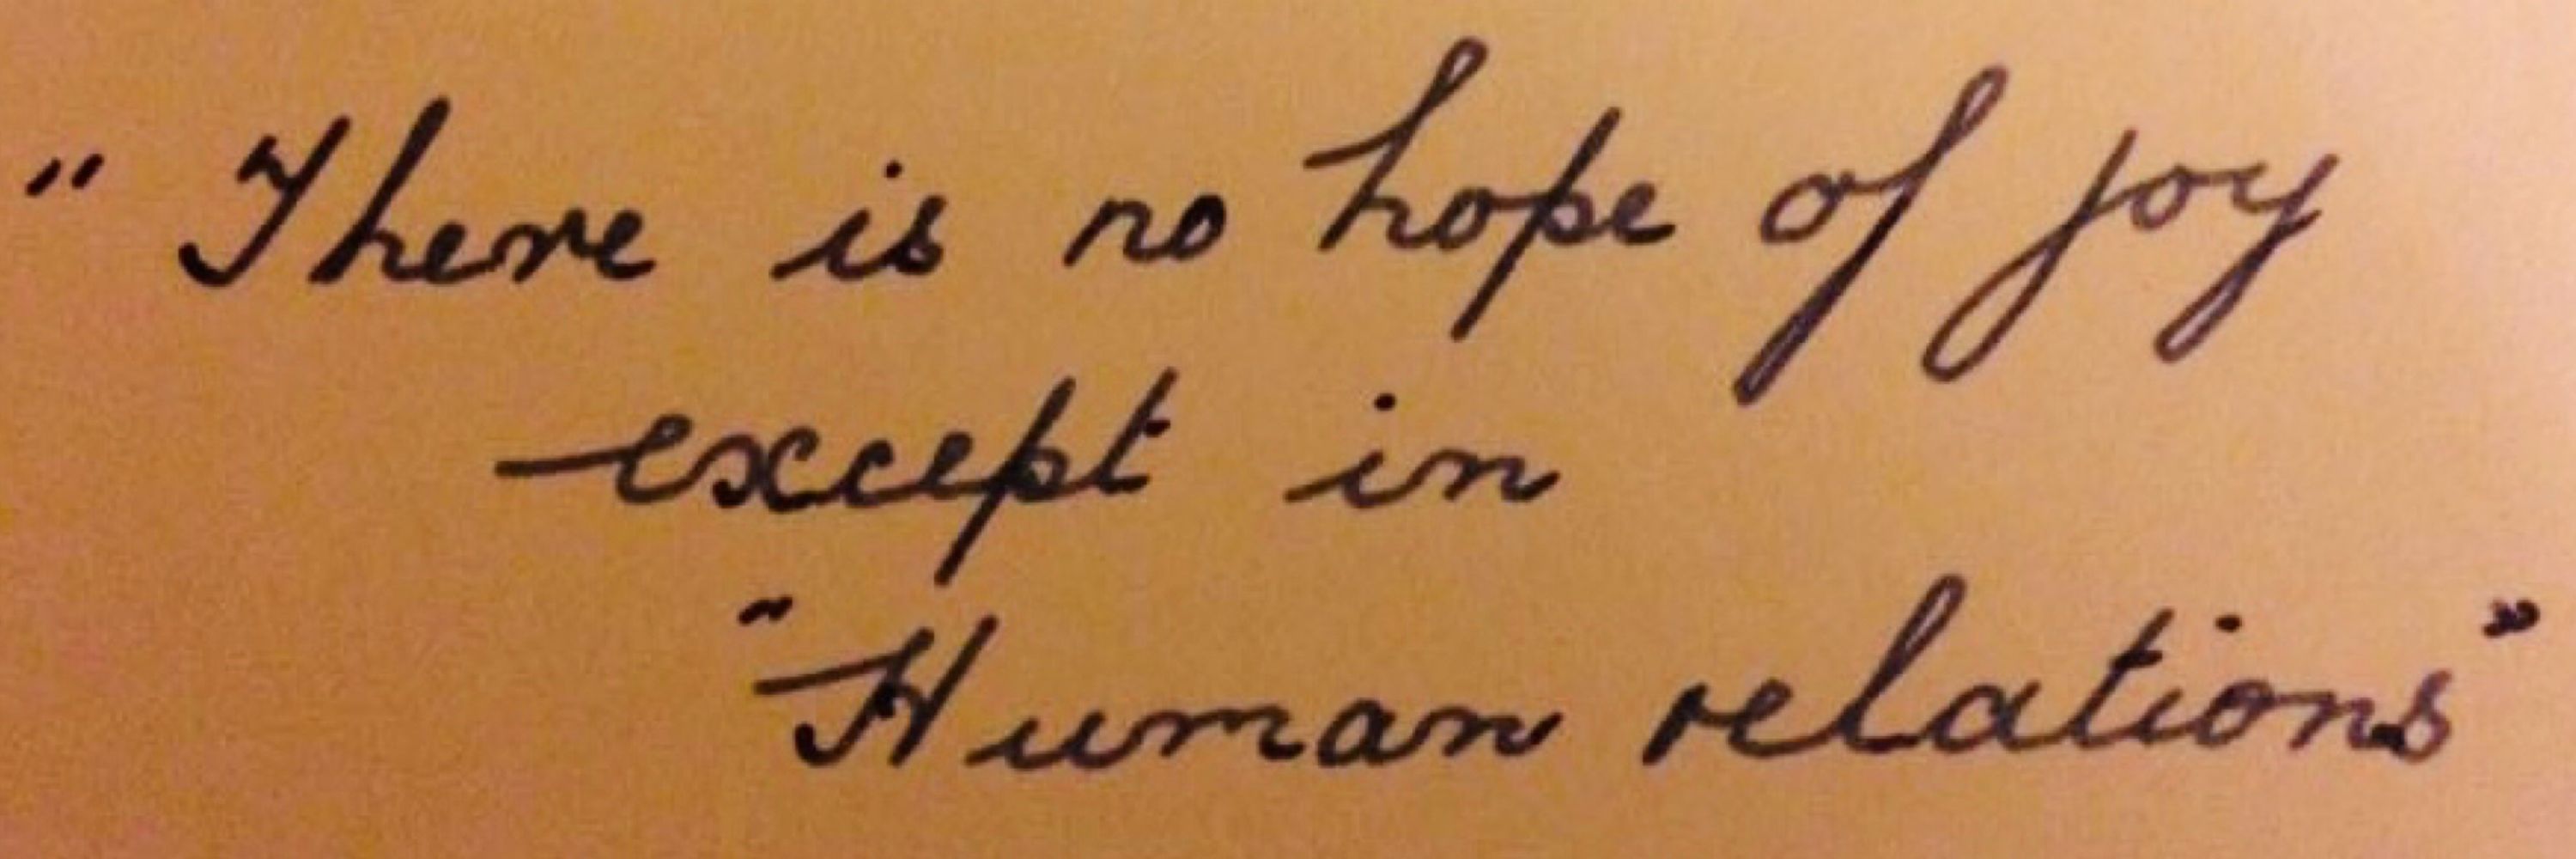 " There is no hope of joy
except in
"Human relations"